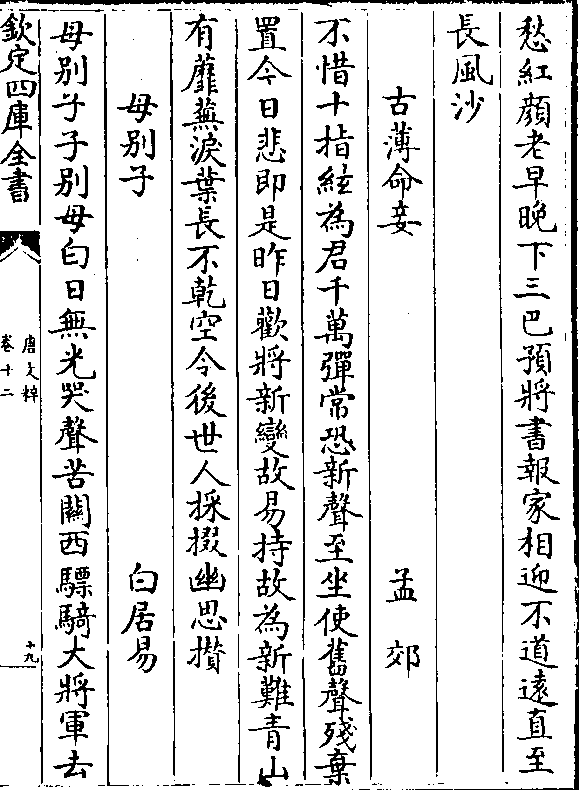 愁紅顔老早晚下三巴預將書報家相迎不道遠直至
長風沙
古薄命妾　孟郊
不惜十指絃為君千萬彈常恐新聲至坐使舊聲殘棄
置今日悲即是昨日歡將新變故易持故為新難青山
有蘼蕪淚葉長不乾空令後世人採掇幽思攢
母別子　白居易
母別子子別母白日無光哭聲苦關西驃騎大將軍去
欽定四庫全書
唐文粹
卷十二
十九